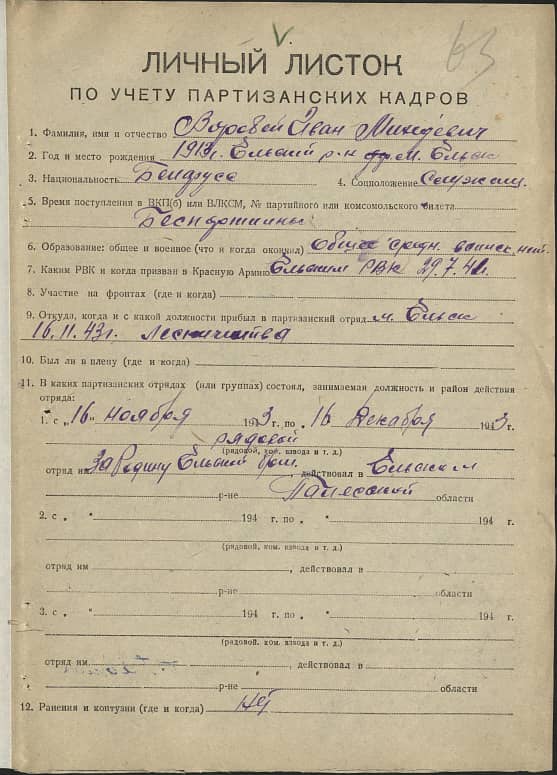 63
ЛИЧНЫЙ ЛИСТОК
ПО УЧЕТУ ПАРТИЗАНСКИХ КАДРОВ
1. Фамилия, имя и отчество Иван
2. Год и место рождения 1913 г. Ельский р-н м. Ельск
3. Национальность Беларус 4. Соцположение Служащ.
5. Время поступления в ВКП(б) или ВЛКСМ, № партийного или комсомольского билета
Беспартийный
6. Образование: общее и военное (что и когда окончил) Общее средн. воинск. нет
7. Каким РВК и когда призван в Красную Армию Ельским РВК 29.7.41г.
8. Участие на фронтах (где и когда)
9. Откуда, когда и с какой должности прибыл в партизанский отряд м. Ельск
16.11.43г. Лесничества
10. Был ли в плену (где и когда)
11. В каких партизанских отрядах (или группах) состоял, занимаемая должность и район действия
отряда:
1. с „16" ноября 1943 г. по „16" декабря 1943 г.
рядовой
(рядовой, ком. взвода и т. д.)
отряд им За Родину Ельский бриг. действовал в Ельском
р-не Полесской области
2. с „ " 194 г. по „ " 194 г.
(рядовой, ком. взвода и т. д.)
отряд им , действовал в
р-не области
3. с „ " 194 г. по „ " 194 г.
(рядовой, ком. взвода и т. д.)
отряд им. , действовал в
р-не области
12. Ранения и контузии (где и когда) нет